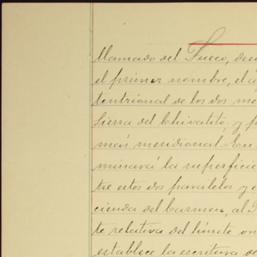 llamado del Sueco, de
el primer nombre, el
tentrional de los dos me
Sierra del Chivatito, y p
más meridional. En
minará la superficie
tre estos dos paralelos y
cienda del Carmen, al
te relativa del límite on
establece la escritura de